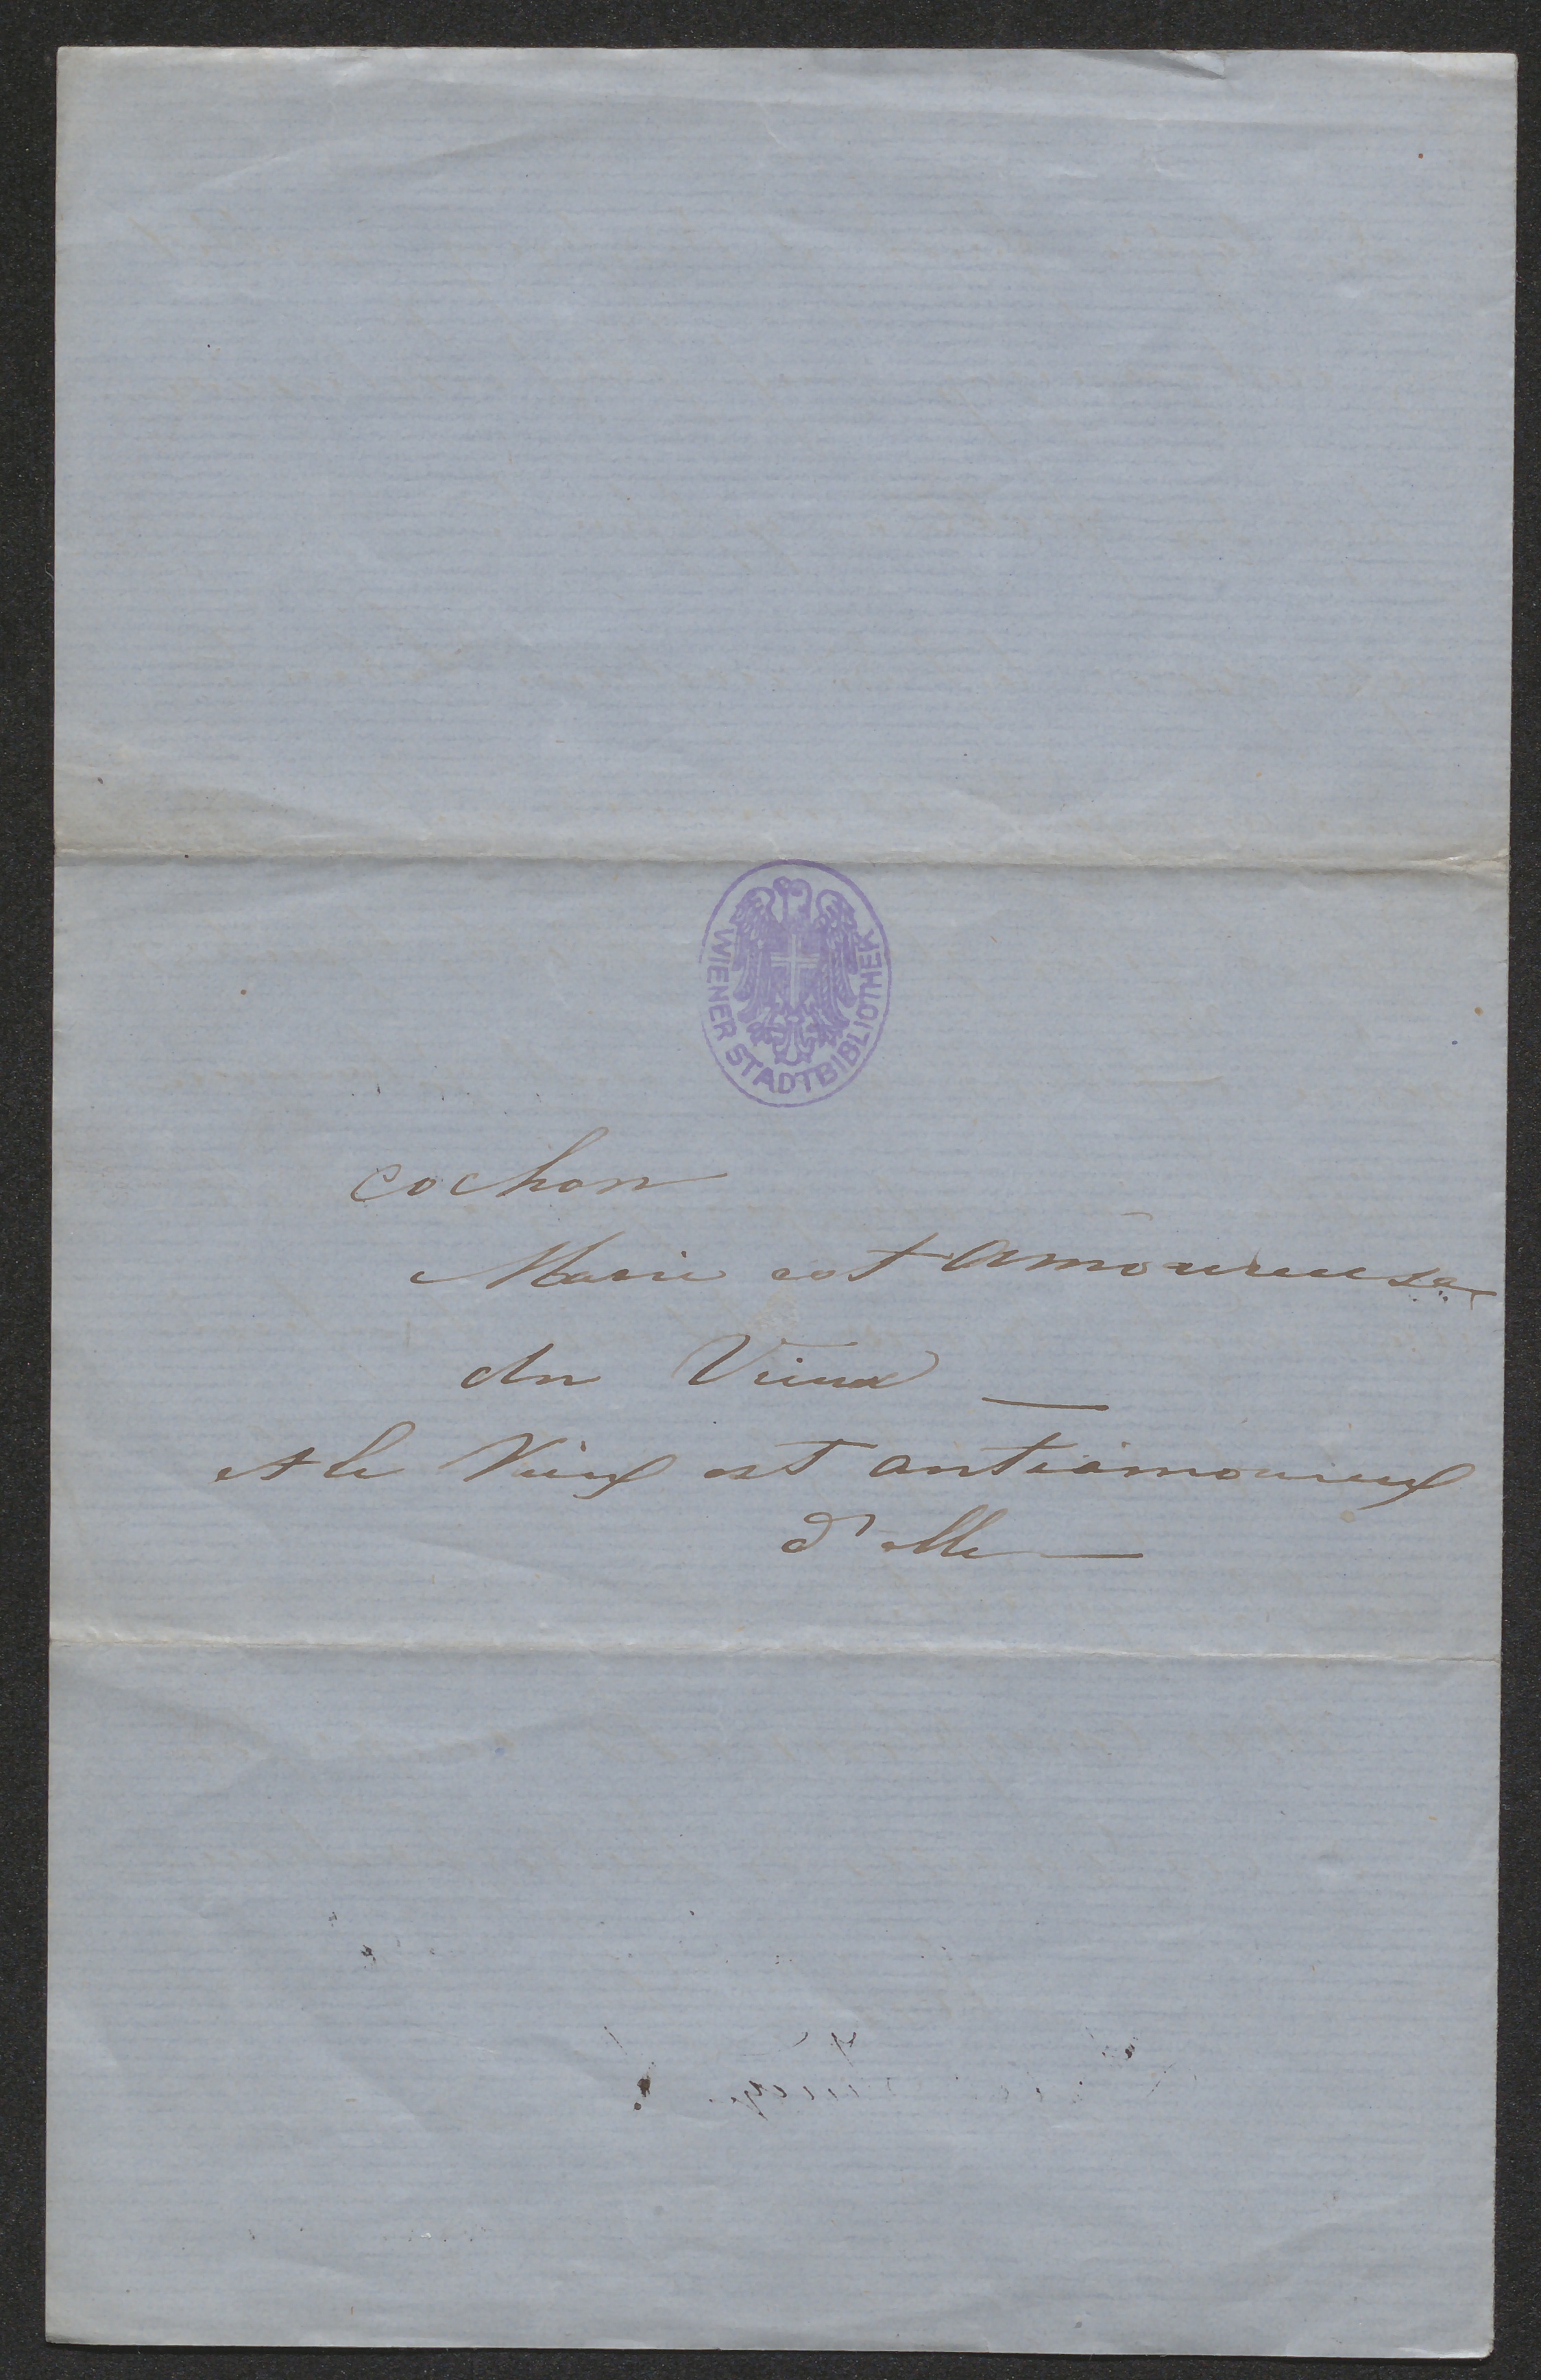 WIENER STADTBIBLIOTHEK
cochon
Marie est amoureuse
du Vieux —
et le Vieux est antiamoureux
d'elle —